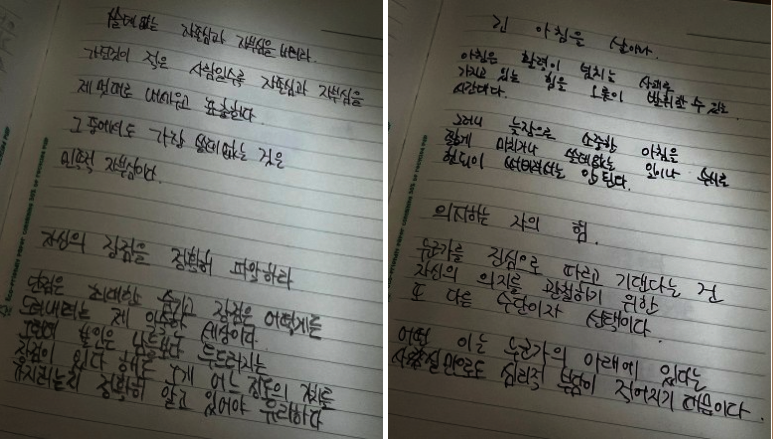 쓸데없는 자존심과 자부심을 버려라.
가진것이 적은 사람일수록 자존심과 자부심을
제멋대로 내세우고 표출한다
그 중에서도 가장 쓸데없는 것은
민족적 자부심이다.
자신의 장점을 정확히 파악하라
단점은 최대한 숨기고 장점은 어떻게든
드러내려는 게
남들보다 두드러지는
장점이 있다 해도 그게 어느 정도의 가치를
정확히 알고 있어야 유리하다
긴 아침은 삶이다.
아침은 활력이 넘치는 상태로
가지고 있는 힘을 오롯이 발휘할 수 있는
시간대다.
그러니 늦잠으로 소중한 아침을
짧게 쓸데없는 일이나
안 된다.
의지하는 자의 힘.
누군가를 진심으로 따르고 기댄다는 건
자신의 의지를 관철하기 위한
또 다른 수단이자 선택이다.
어떤 이는 누군가의 아래에 있다는
사실만으로도 심리적 부담이 적어지기 때문이다.